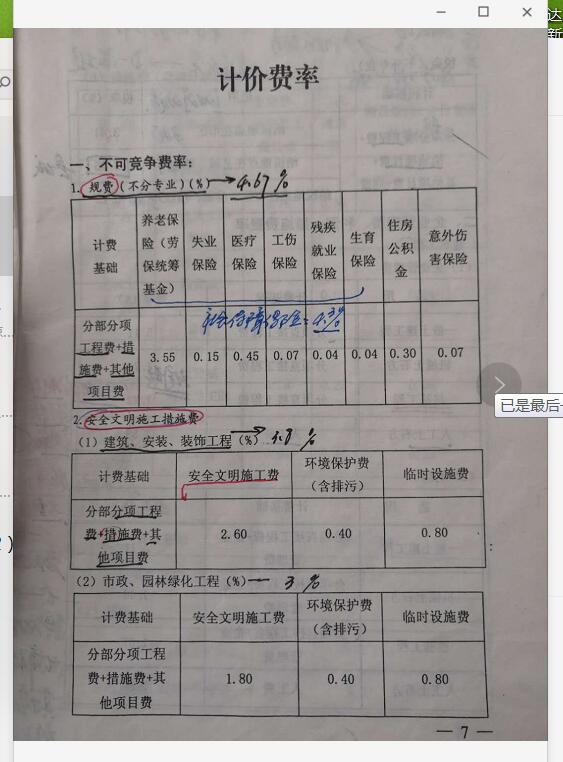 计价费率
一、不可竞争费率:
1.规费(不分专业)(%) 4.67%
计费
基础
养老保
险(劳
保统筹
基金)
失业
保险
医疗
保险
工伤
保险
残疾
就业
保险
生育
保险
住房
公积
金
意外伤
害保险
分部分项
工程费+措
施费+其他
项目费
3.55 0.15 0.45 0.07 0.04 0.04 0.30 0.07
2.安全文明施工措施费
(1)建筑、安装、装饰工程(%) 3.8%
计费基础 安全文明施工费
环境保护费
(含排污)
临时设施费
分部分项工程
费+措施费+其
他项目费
2.60 0.40 0.80
(2)市政、园林绿化工程(%) 3%
计费基础 安全文明施工费
环境保护费
(含排污)
临时设施费
分部分项工程
费+措施费+其
他项目费
1.80 0.40 0.80
— 7 —
已是最后